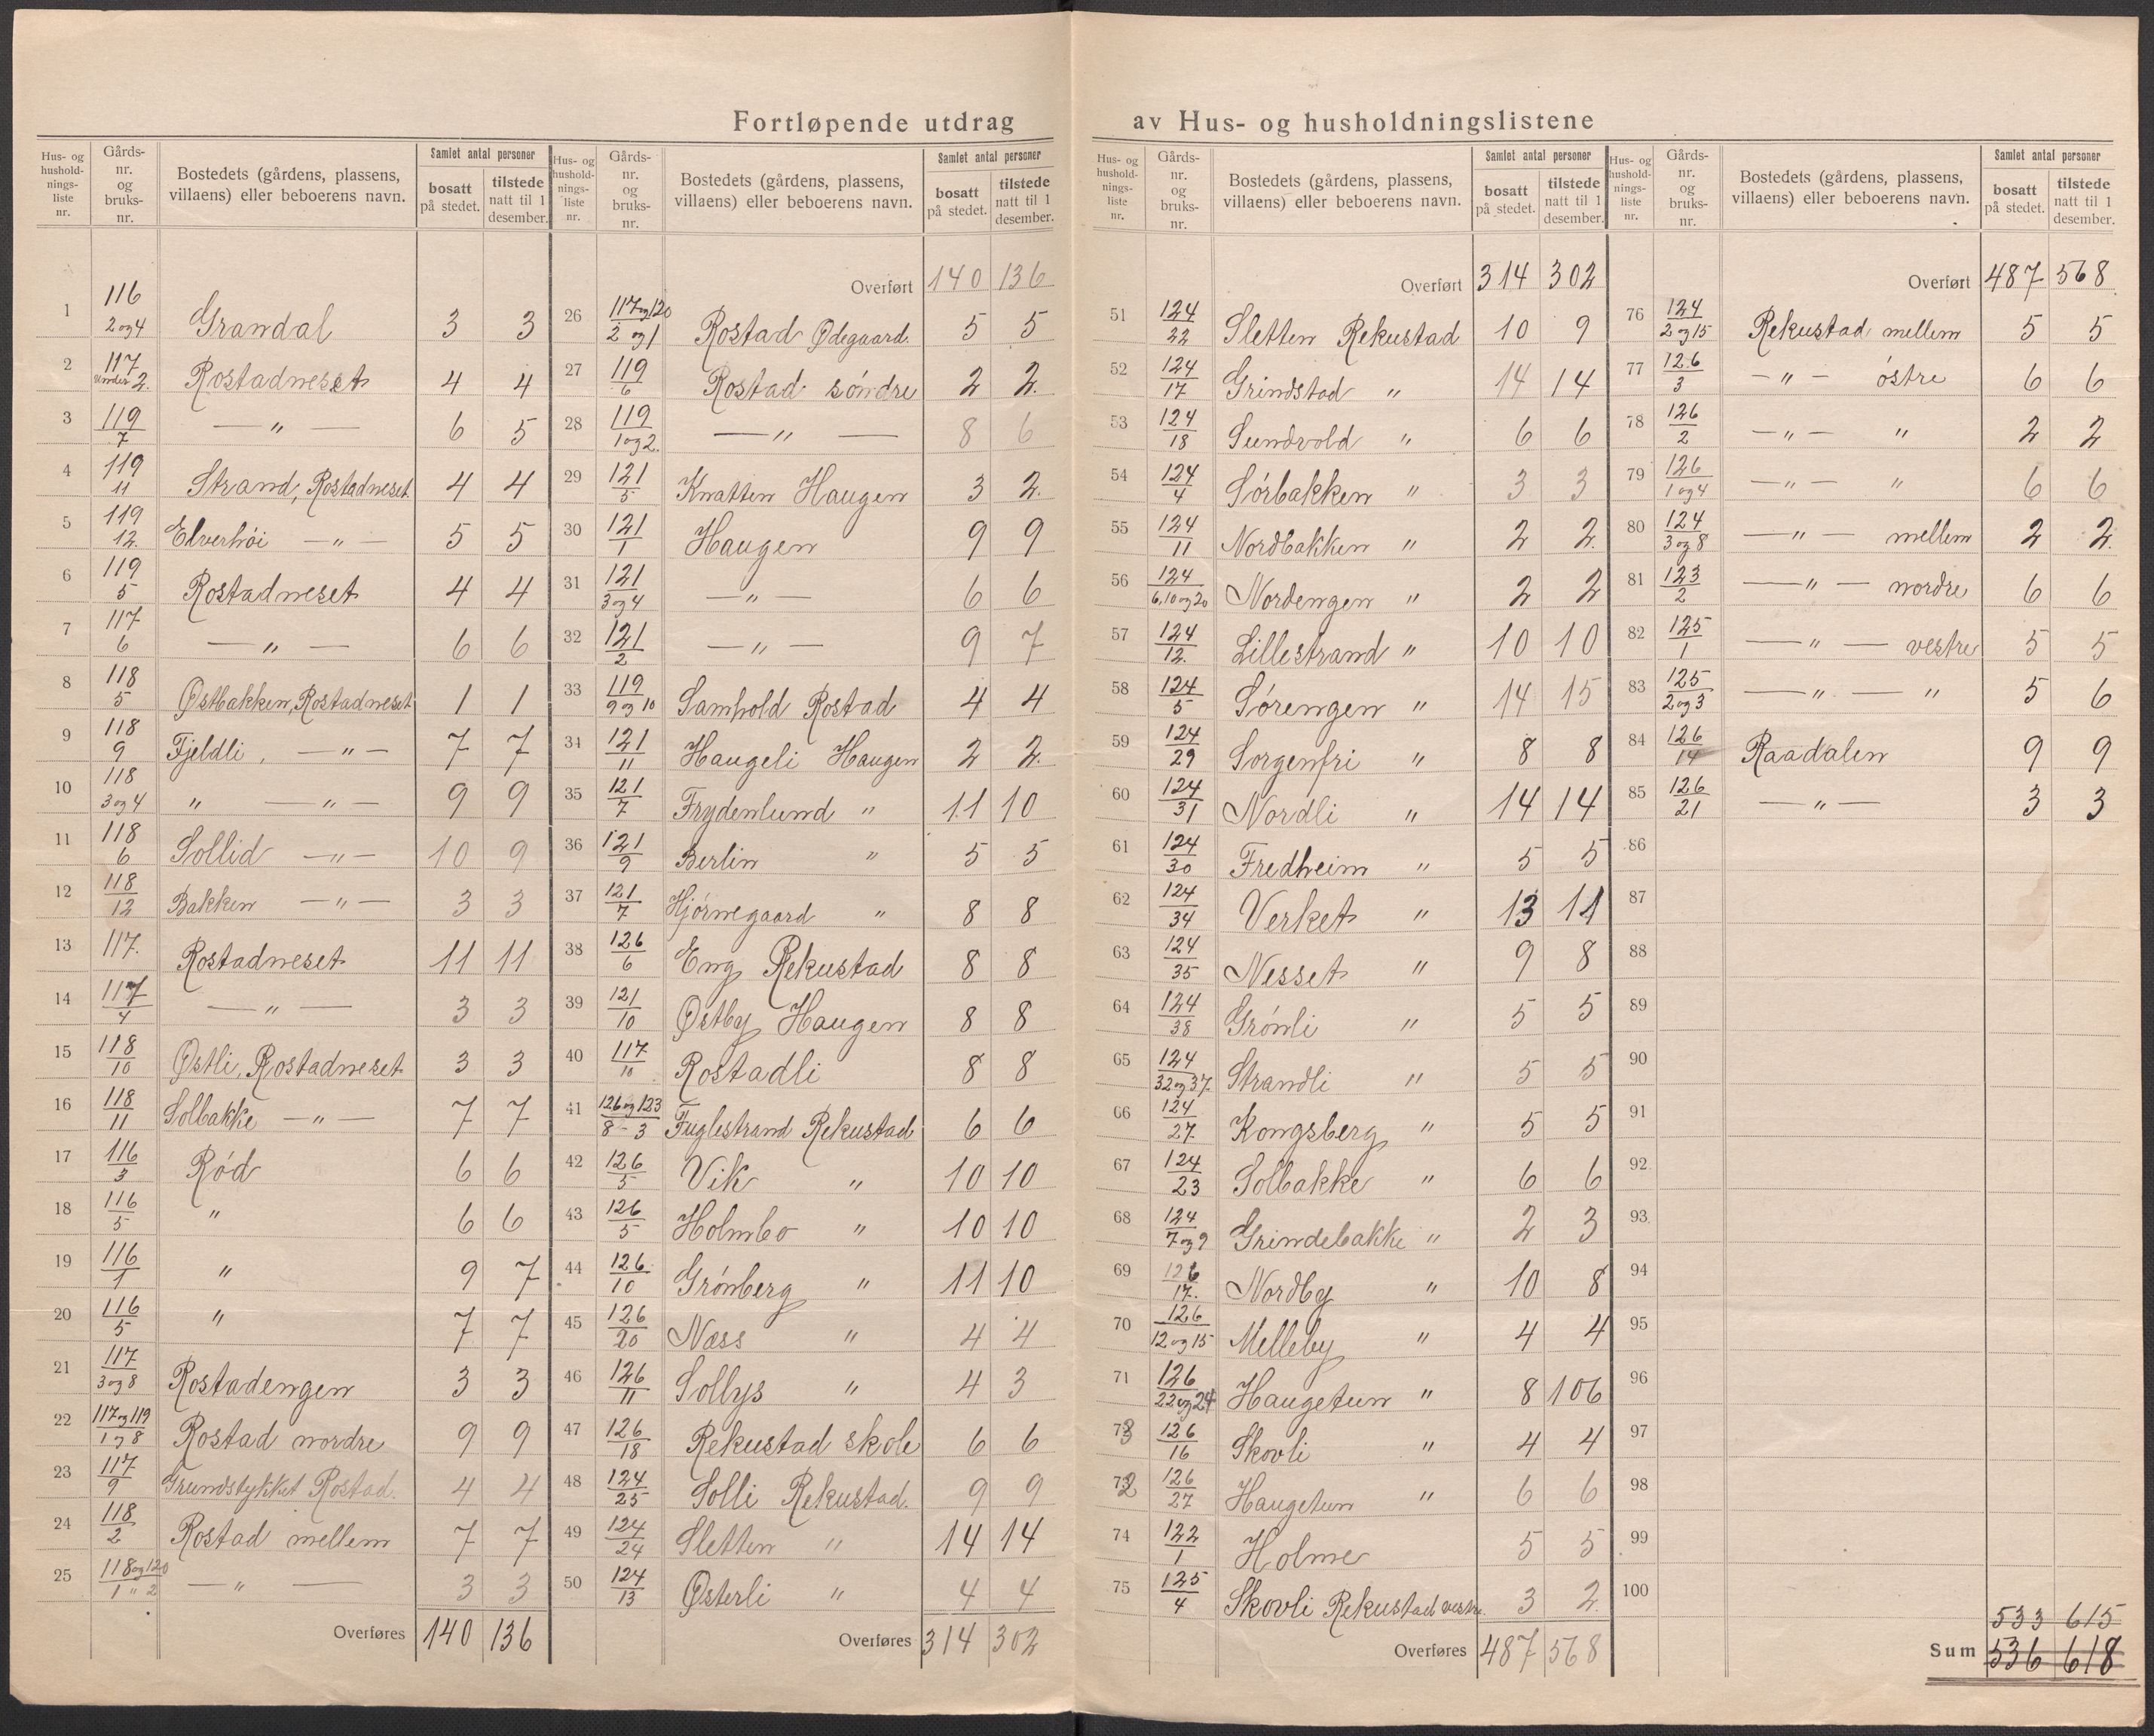 Fortløpende utdrag av Hus- og husholdningslistene
Hus- og hushold-nings-liste nr. Gårds-nr. og bruks-nr. Bostedets (gårdens, plassens, villaens) eller beboerens navn. Samlet antal personer bosatt på stedet. tilstede natt til 1 desember.
1 116 2 og 4 Grandal 3 3
2 117 under 2. Rostadneset 4 4
3 119/7 — " — 6 5
4 119 11 Strand, Rostadneset 4 4
5 119 12. Elverhöi — " — 5 5
6 119 5 Rostadneset 4 4
7 117 6 — " — 6 6
8 118 5 Østbakken, Rostadneset 1 1
9 118 9 Fjeldli, — " — 7 7
10 118 3 og 4 " — " — 9 9
11 118 6 Sollid — " — 10 9
12 118/12 Bakken — " — 3 3
13 117. Rostadneset 11 11
14 117/4 — " — 3 3
15 118/10 Østli, Rostadneset 3 3
16 118/11 Solbakke — " — 7 7
17 116/3 Röd 6 6
18 116/5 " 6 6
19 116/1 " 9 7
20 116/5 " 7 7
21 117/3 og 8 Rostadengen 3 3
22 117 og 119/1 og 8 Rostad nordre 9 9
23 117/9 Grundstykket Rostad. 4 4
24 118/2 Rostad mellem 7 7
25 118 og 120/1 " 2 — " — 3 3
Overføres 140 136
Hus- og hushold-nings-liste nr. Gårds-nr. og bruks-nr. Bostedets (gårdens, plassens, villaens) eller beboerens navn. Samlet antal personer bosatt på stedet. tilstede natt til 1 desember.
Overført 140 136
26 117 og 120/2 og 1 Rostad Ødegaard. 5 5
27 119/6 Rostad söndre 2 2.
28 119/1 og 2. — " — 8 6
29 121/5 Knatten Haugen 3 2.
30 121/1 Haugen 9 9
31 121/3 og 4 — " — 6 6
32 121/2 — " — 9 7
33 119/9 og 10 Samhold Rostad 4 4
34 121/11 Haugeli Haugen 2 2.
35 121/7 Frydenlund " 11 10
36 121/9 Berlin " 5 5
37 121/7 Hjörnegaard " 8 8
38 126/6 Eng Rekustad 8 8
39 121/10 Østby Haugen 8 8
40 117/10 Rostadli 8 8
41 126 og 123/8 - 3 Fuglestrand Rekustad 6 6
42 126/5 Vik " 10 10
43 126/5 Holmbo " 10 10
44 126/10 Grönberg " 11 10
45 126/20 Næss " 4 4
46 126/11 Sollys " 4 3
47 126/18 Rekustad skole 6 6
48 124/25 Solli Rekustad. 9 9
49 124/24 Sletten " 14 14
50 124/13 Østerli " 4 4
Overføres 314 302
Hus- og hushold-nings-liste nr. Gårds-nr. og bruks-nr. Bostedets (gårdens, plassens, villaens) eller beboerens navn. Samlet antal personer bosatt på stedet. tilstede natt til 1 desember.
Overført 314 302
51 124/22 Sletten Rekustad 10 9
52 124/17 Grindstad " 14 14
53 124/18 Sundvold " 6 6
54 124/4 Sörbakken " 3 3
55 124/11 Nordbakken " 2 2.
56 124/6, 10 og 20 Nordengen " 2 2
57 124/12. Lillestrand " 10 10
58 124/5 Sörengen " 14 15
59 124/29 Sorgenfri " 8 8
60 124/31 Nordli " 14 14
61 124/30 Fredheim " 5 5
62 124/34 Verket " 13 11
63 124/35 Nesset " 9 8
64 124/38 Grönli " 5 5
65 124/32 og 37. Strandli " 5 5
66 124/27. Kongsberg " 5 5
67 124/23 Solbakke " 6 6
68 124/7 og 9 Grindebakke " 2 3
69 126/17. Nordby " 10 8
70 126/12 og 15 Melleby " 4 4
71 126/22 og 24 Haugetun " 8 106
73 126/16 Skovli " 4 4
72 126/27 Haugetun " 6 6
74 122/1 Holme 5 5
75 125/4 Skovli Rekustad vestre. 3 2.
Overføres 487 568
Hus- og hushold-nings-liste nr. Gårds-nr. og bruks-nr. Bostedets (gårdens, plassens, villaens) eller beboerens navn. Samlet antal personer bosatt på stedet. tilstede natt til 1 desember.
Overført 487 568
76 124/2 og 15 Rekustad mellem 5 5
77 126/3 — " — östre 6 6
78 126/2 — " — " 2 2
79 126/1 og 4 — " — " 6 6
80 124/3 og 8 — " — mellem 2 2.
81 123/2 — " — nordre 6 6
82 125/1 — " — vestre 5 5
83 125/2 og 3 — " — " 5 6
84 126/14 Raadalen 9 9
85 126/21 — " — 3 3
86
87
88
89
90
91
92
93
94
95
96
97
98
99
100
533 615
Sum 536 618